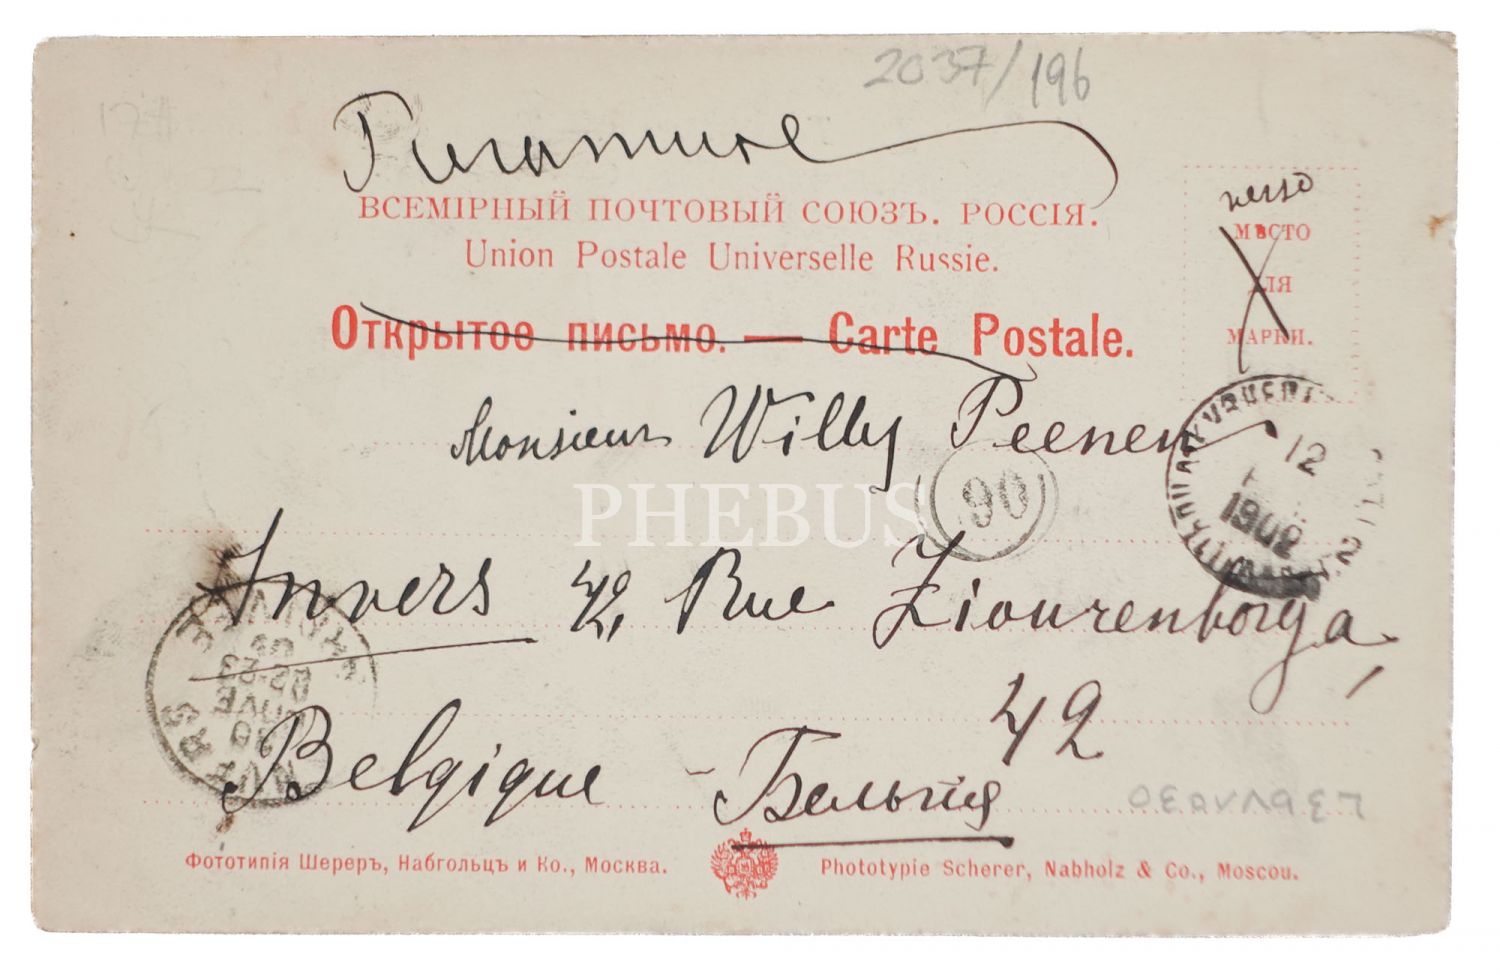 2037/196
ВСЕМІРНЫЙ ПОЧТОВЫЙ СОЮЗЪ. РОССІЯ.
Union Postale Universelle Russie.
МѢСТО
ДЛЯ
МАРКИ.
Открытое письмо. — Carte Postale.
Monsieur Willy Peenen
12
1902
90
PHEBUS
Anvers 42, Rue
42
Belgique - Бельгія
Фототипія Шереръ, Набгольцъ и Ко., Москва.
Phototypie Scherer, Nabholz & Co., Moscou.